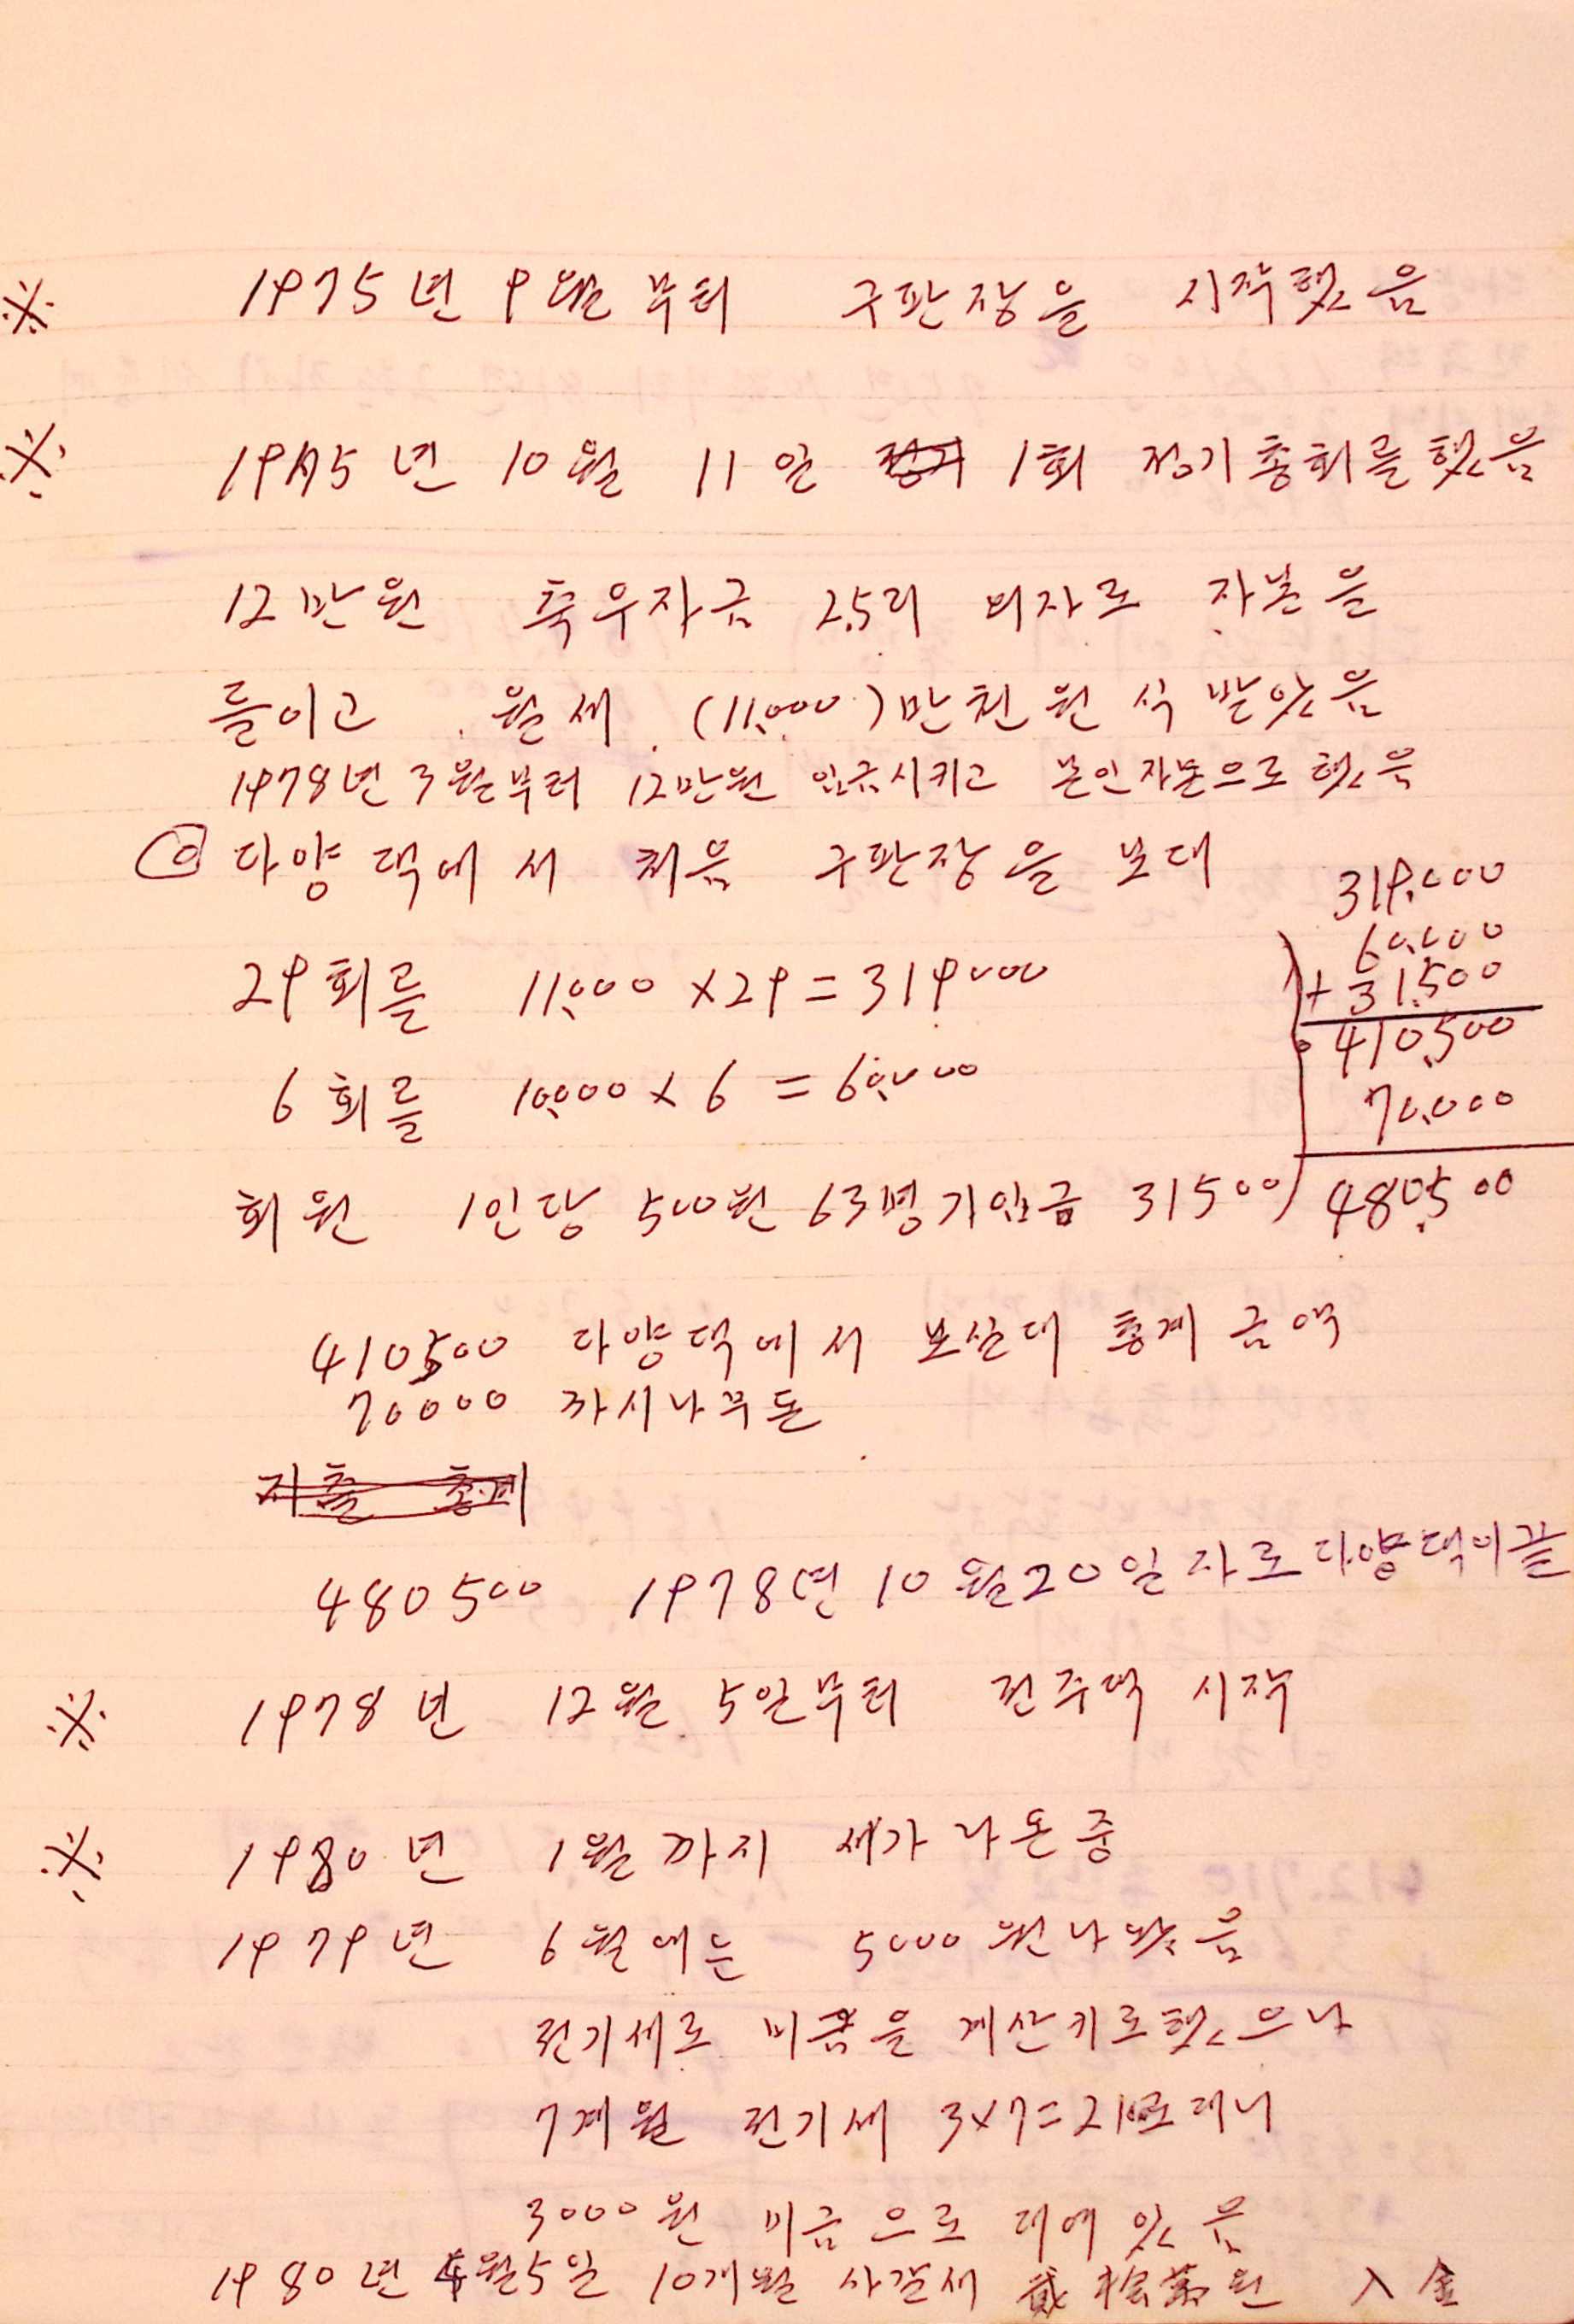 ※ 1975년 9월부터 구판장을 시작했음
※ 1975년 10월 11일 정기 1회 정기총회를 했음
12만원 축우자금 2.5리 비자로 자본을
들이고 월세 (11,000) 만천원식 받았음
1978년 3월부터 12만원 입금시키고 본인자본으로 했음
다양댁에서 처음 구판장을 보대
29회를 11,000 × 29 = 319000
6회를 10,000 × 6 = 60,000
회원 1인당 500원 63명 가입금 31500
319,000
60,000
+ 31,500
410,500
70,000
480,500
410500 다양댁에서 보실대 총계 금액
70000 까시나무돈
지출 총계
480500 1978년 10월 20일자로 다양댁이 끝
※ 1978년 12월 5일부터 전주댁 시작
※ 1980년 1월까지 세가 나온중
1979년 6월에는 5000원 나왔음
전기세로 미금을 계산키로 했으나
7계월 전기세 3×7=21로 대니
3000원 미금으로 대에 있음
1980년 4월 5일 10개월 사갈세 貳拾萬원 入金